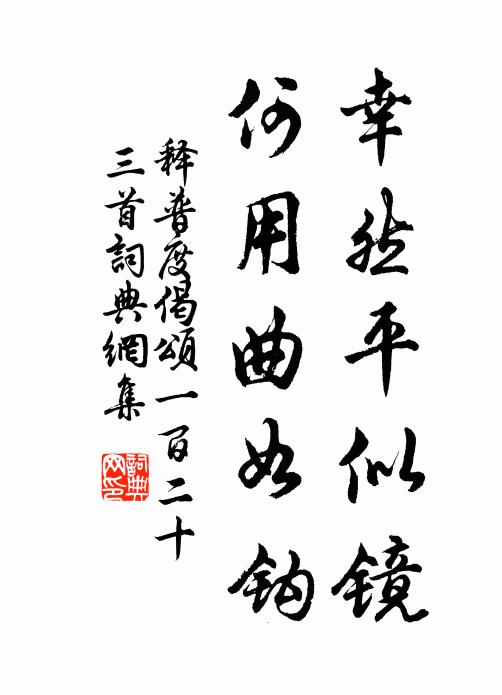 幸然平似镜
何用曲如钩
释普度偈頌一百二十
三首詞典網集
詞典
网印